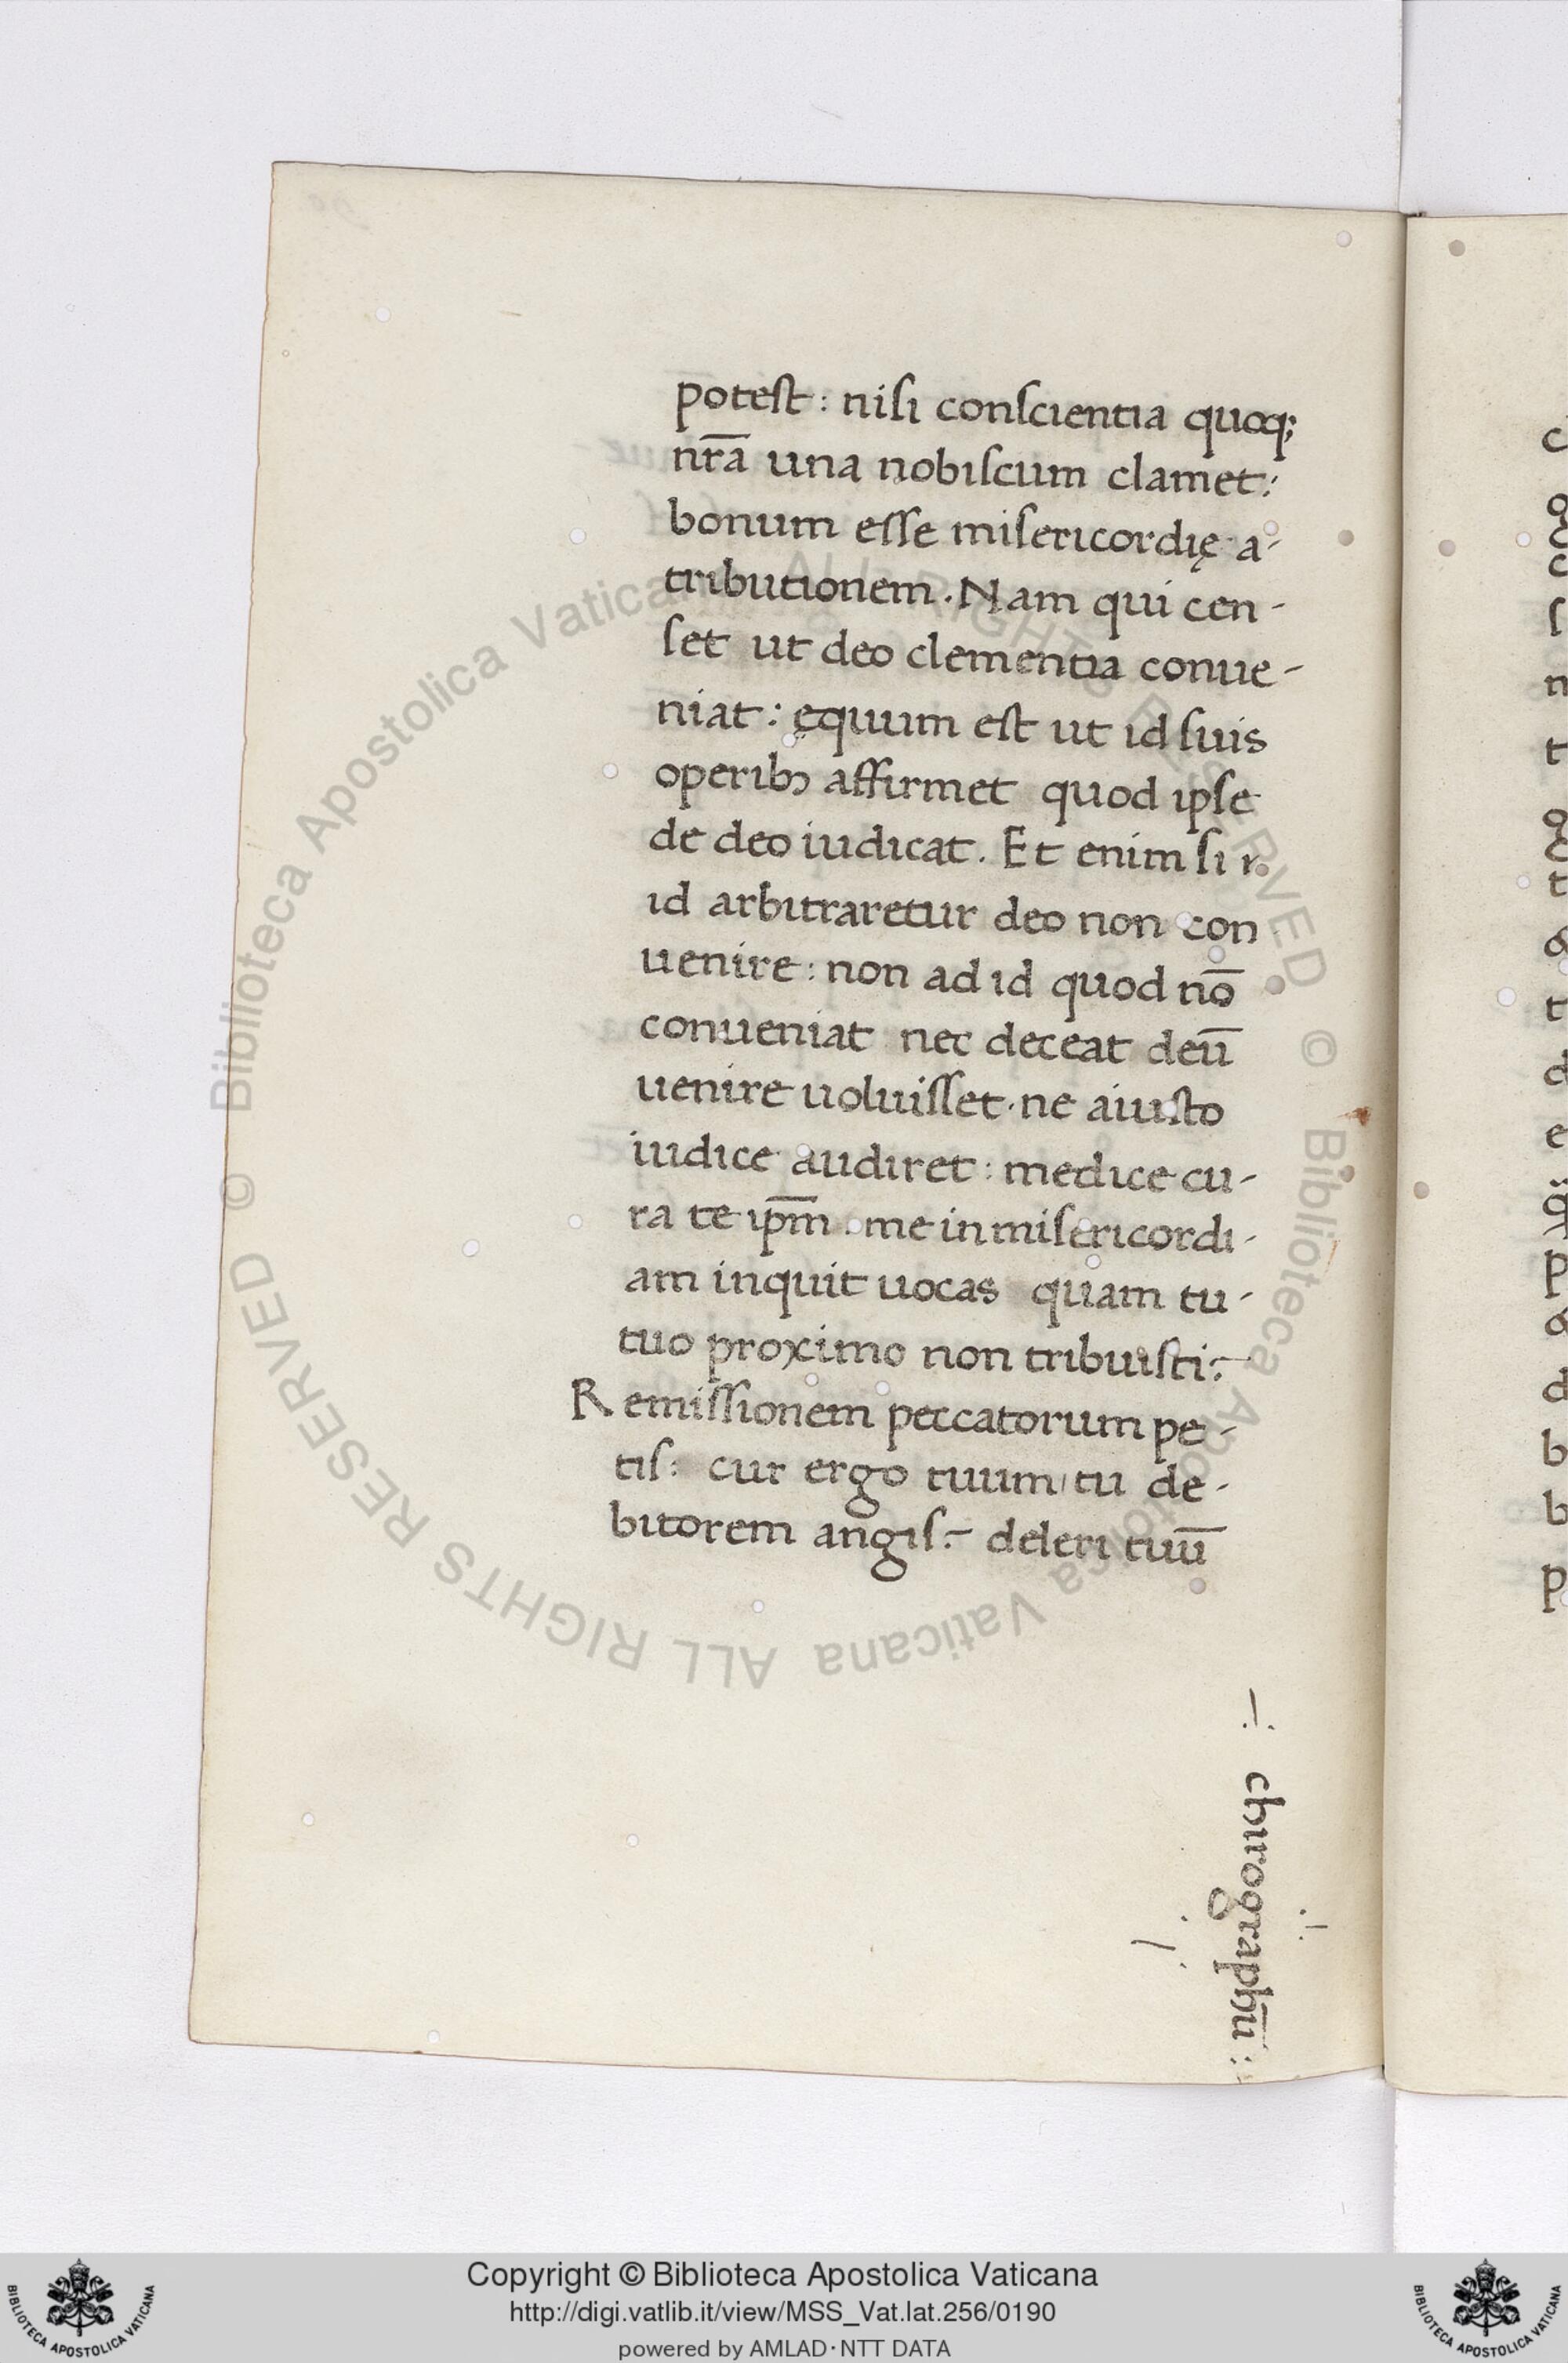 potest: nisi conscientia quoq;
nr̄a una nobiscum clamet:
bonum esse misericordię a-
tributionem. Nam qui cen-
set ut deo clementia conue-
niat: ęquum est ut id suis
operibꝫ affirmet quod ipse
de deo iudicat. Et enim si
id arbitraretur deo non con
uenire: non ad id quod nō
conueniat nec deceat deū
uenire uoluisset. ne aiusto
iudice audiret: medice cu-
ra te ip̄m. me in misericordi-
am inquit uocas quam tu-
tuo proximo non tribuisti:
Remissionem peccatorum pe-
tis: cur ergo tuum tu de-
bitorem angis: deleri tuū
chirographū:
Copyright © Biblioteca Apostolica Vaticana
http://digi.vatlib.it/view/MSS_Vat.lat.256/0190
powered by AMLAD·NTT DATA
BIBLIOTECA APOSTOLICA VATICANA
BIBLIOTECA APOSTOLICA VATICANA
© Biblioteca Apostolica Vaticana ALL RIGHTS RESERVED © Biblioteca Apostolica Vaticana ALL RIGHTS RESERVED